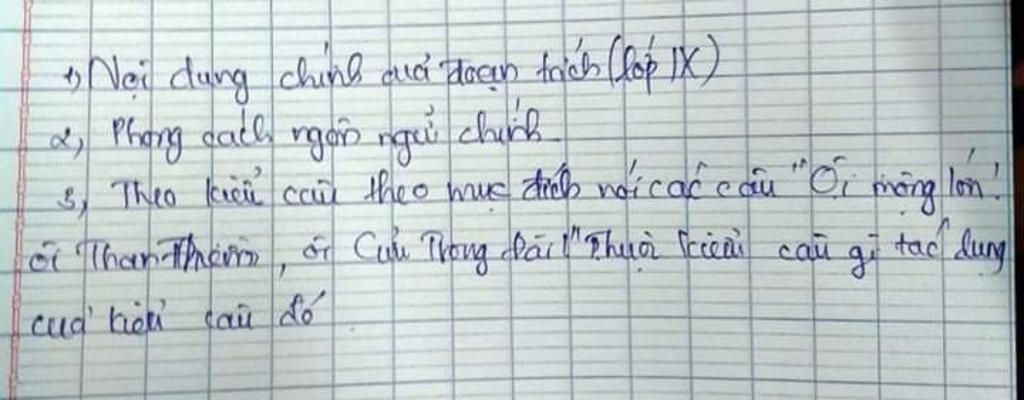 1) Nội dung chính của đoạn trích (lớp IX)
2, Phong cách ngôn ngữ chính
3, Theo kiểu câu theo mục đích nói các câu "Ôi mộng lớn!
ôi Than Thiềm, ôi Cửu Trùng Đài!" Thuộc kiểu câu gì tác dụng
của kiểu câu đó